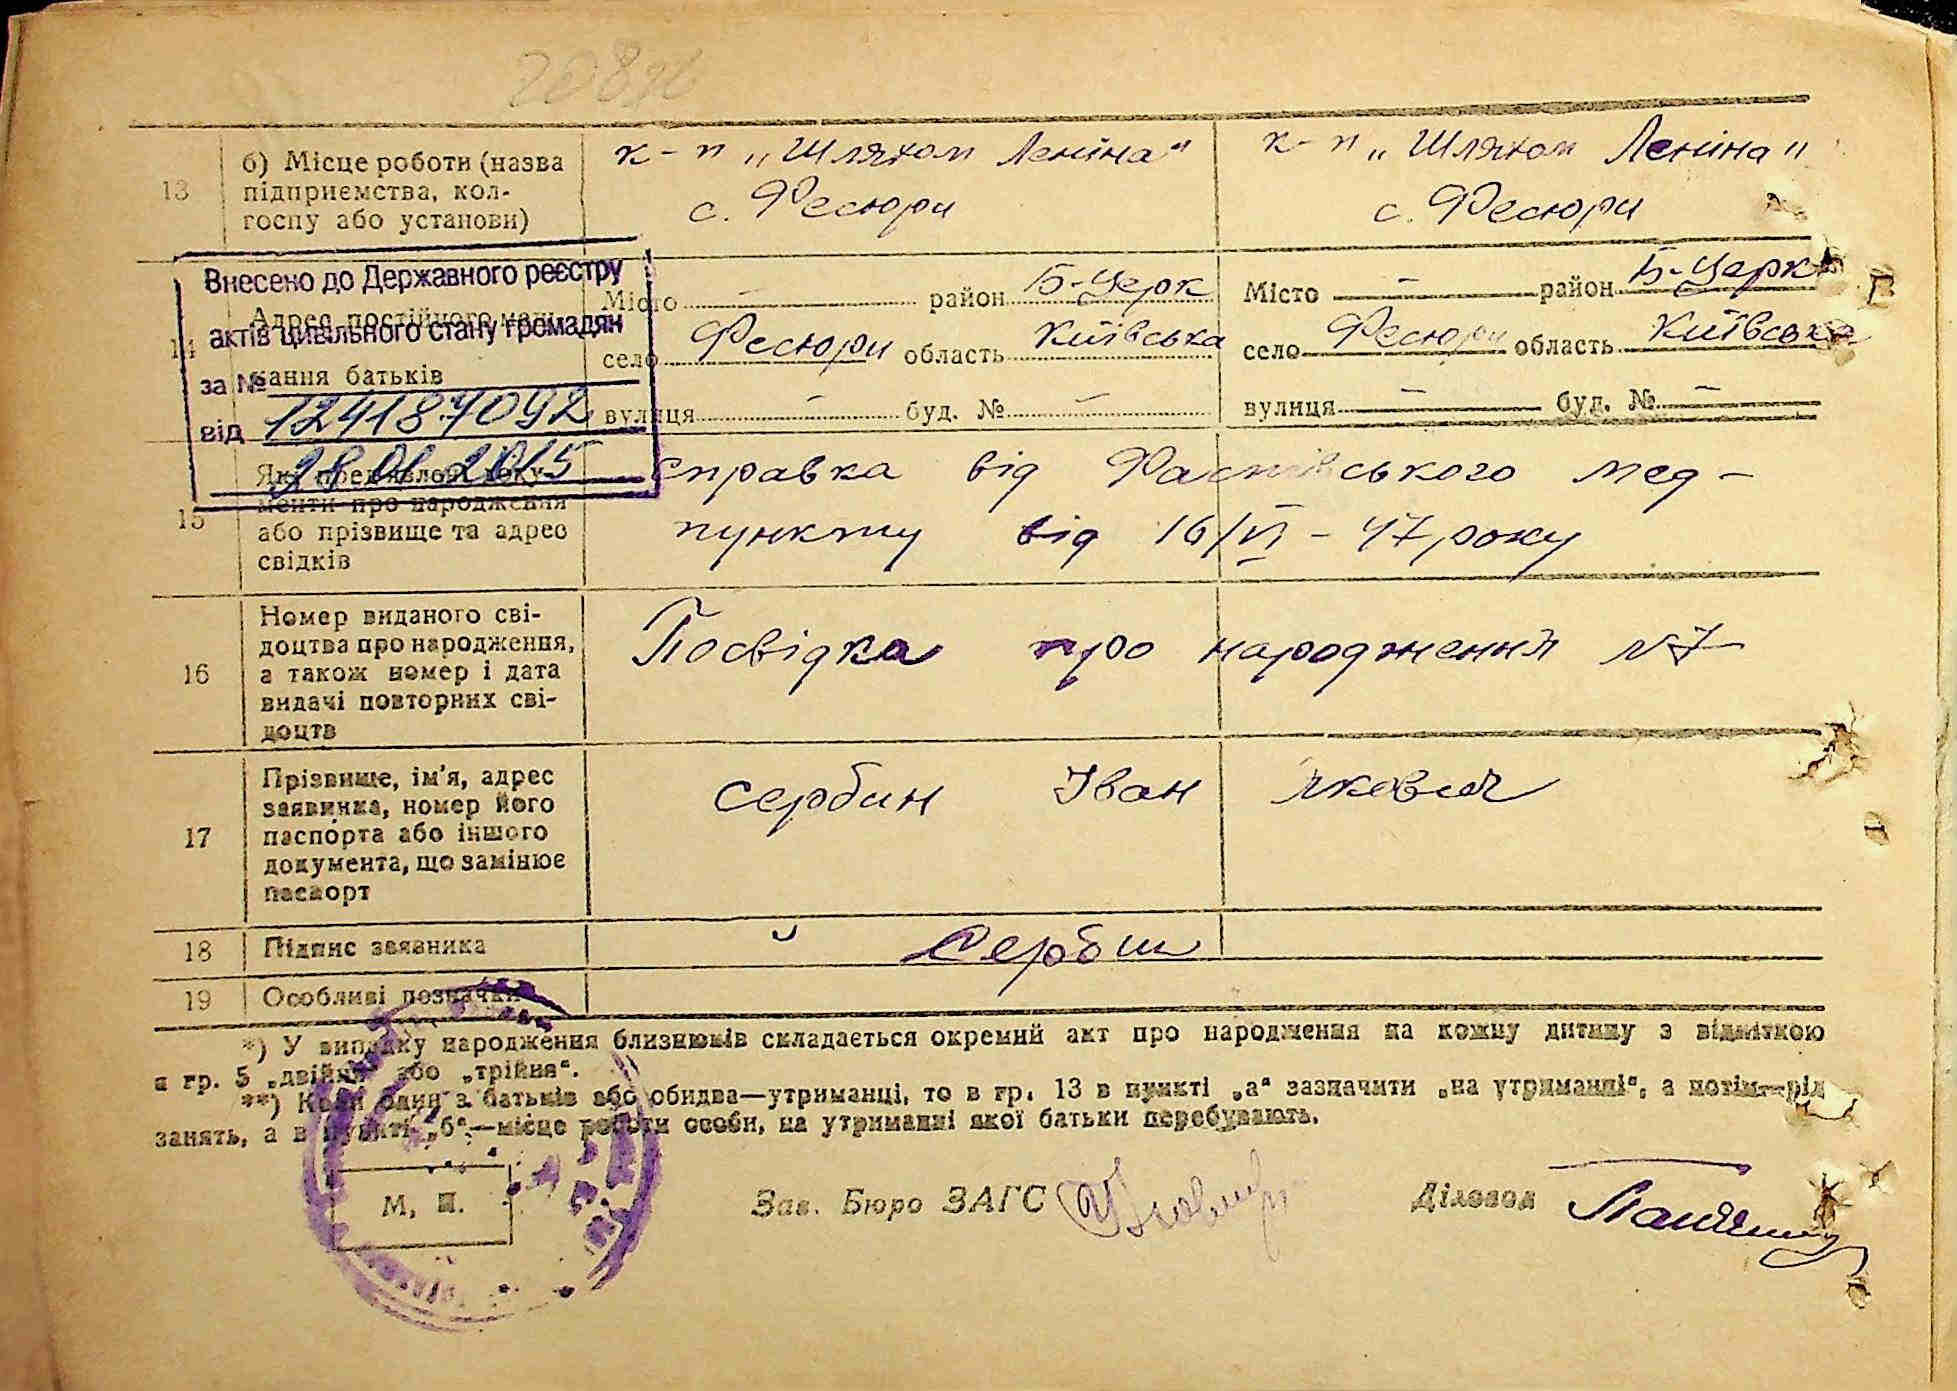 13
б) Місце роботи (назва
підприємства, кол-
госпу або установи)
к-п „Шляхом Леніна“
с. Фесюри
к-п „Шляхом Леніна“
с. Фесюри
Внесено до Державного реєстру
актів цивільного стану громадян
за №
12418 7092
від
28 01 2015
14
Адрес постійного меш-
кання батьків
Місто — район Б-Церк
село Фесюри область Київська
вулиця — буд. № —
Місто — район Б-Церк
село Фесюри область Київська
вулиця — буд. № —
15
Які пред'явлені доку-
менти про народження
або прізвище та адрес
свідків
справка від мед-
пункту від 16/VI - 47 року
16
Номер виданого сві-
доцтва про народження,
а також номер і дата
видачі повторних сві-
доцтв
Посвідка про народження №7
17
Прізвище, ім'я, адрес
заявника, номер його
паспорта або іншого
документа, що замінює
паспорт
Сербин Іван Якович
18
Підпис заявника
Сербин
19
Особливі позначки
*) У випадку народження близнюків складається окремий акт про народження на кожну дитину з відміткою
в гр. 5 „двійня“ або „трійня“.
**) Коли один з батьків або обидва—утриманці, то в гр. 13 в пункті „а“ зазначити „на утриманні“, а потім—рід
занять, а в пункті „б“—місце роботи особи, на утриманні якої батьки перебувають.
М. П.
Зав. Бюро ЗАГС
Діловод